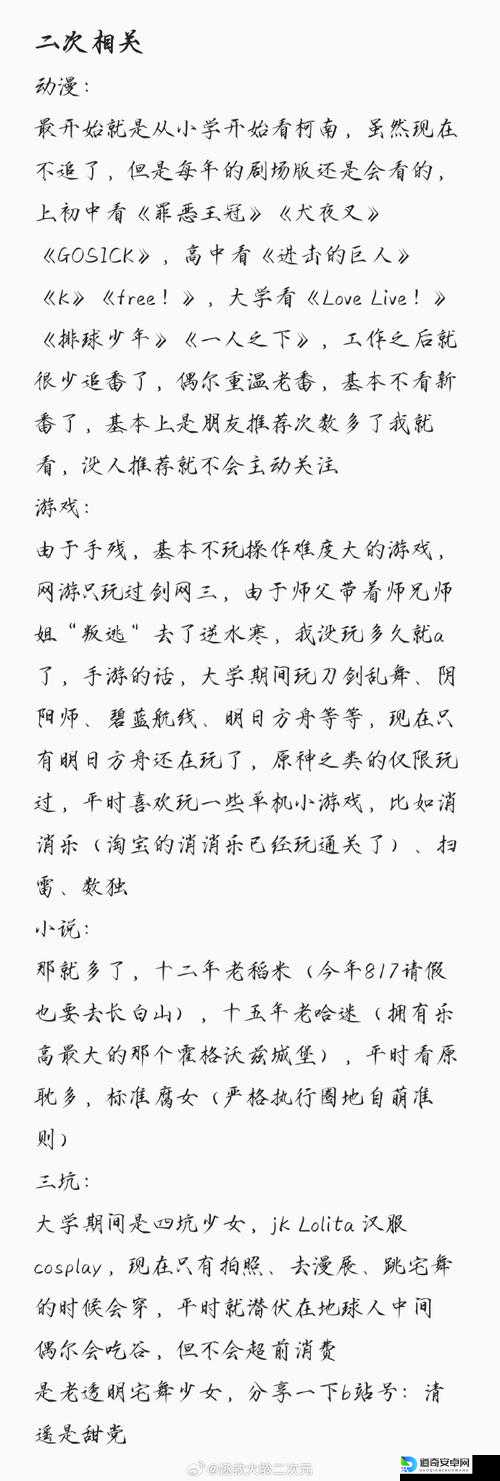 二次相关
动漫：
最开始就是从小学开始看柯南，虽然现在
不追了，但是每年的剧场版还是会看的，
上初中看《罪恶王冠》《犬夜叉》
《GOSICK》，高中看《进击的巨人》
《K》《free！》，大学看《Love Live！》
《排球少年》《一人之下》，工作之后就
很少追番了，偶尔重温老番，基本不看新
番了，基本上是朋友推荐次数多了我就
看，没人推荐就不会主动关注
游戏：
由于手残，基本不玩操作难度大的游戏，
网游只玩过剑网三，由于师父带着师兄师
姐“叛逃”去了逆水寒，我没玩多久就a
了，手游的话，大学期间玩刀剑乱舞、阴
阳师、碧蓝航线、明日方舟等等，现在只
有明日方舟还在玩了，原神之类的仅限玩
过，平时喜欢玩一些单机小游戏，比如消
消乐（淘宝的消消乐已经玩通关了）、扫
雷、数独
小说：
那就多了，十二年老稻米（今年817请假
也要去长白山），十五年老哈迷（拥有乐
高最大的那个霍格沃兹城堡），平时看原
耽多，标准腐女（严格执行圈地自萌准
则）
三坑：
大学期间是四坑少女，jk Lolita 汉服
cosplay，现在只有拍照、去漫展、跳宅舞
的时候会穿，平时就潜伏在地球人中间
偶尔会吃谷，但不会超前消费
是老透明宅舞少女，分享一下b站号：清
遥是甜党
@拯救大龄二次元
道奇安卓网